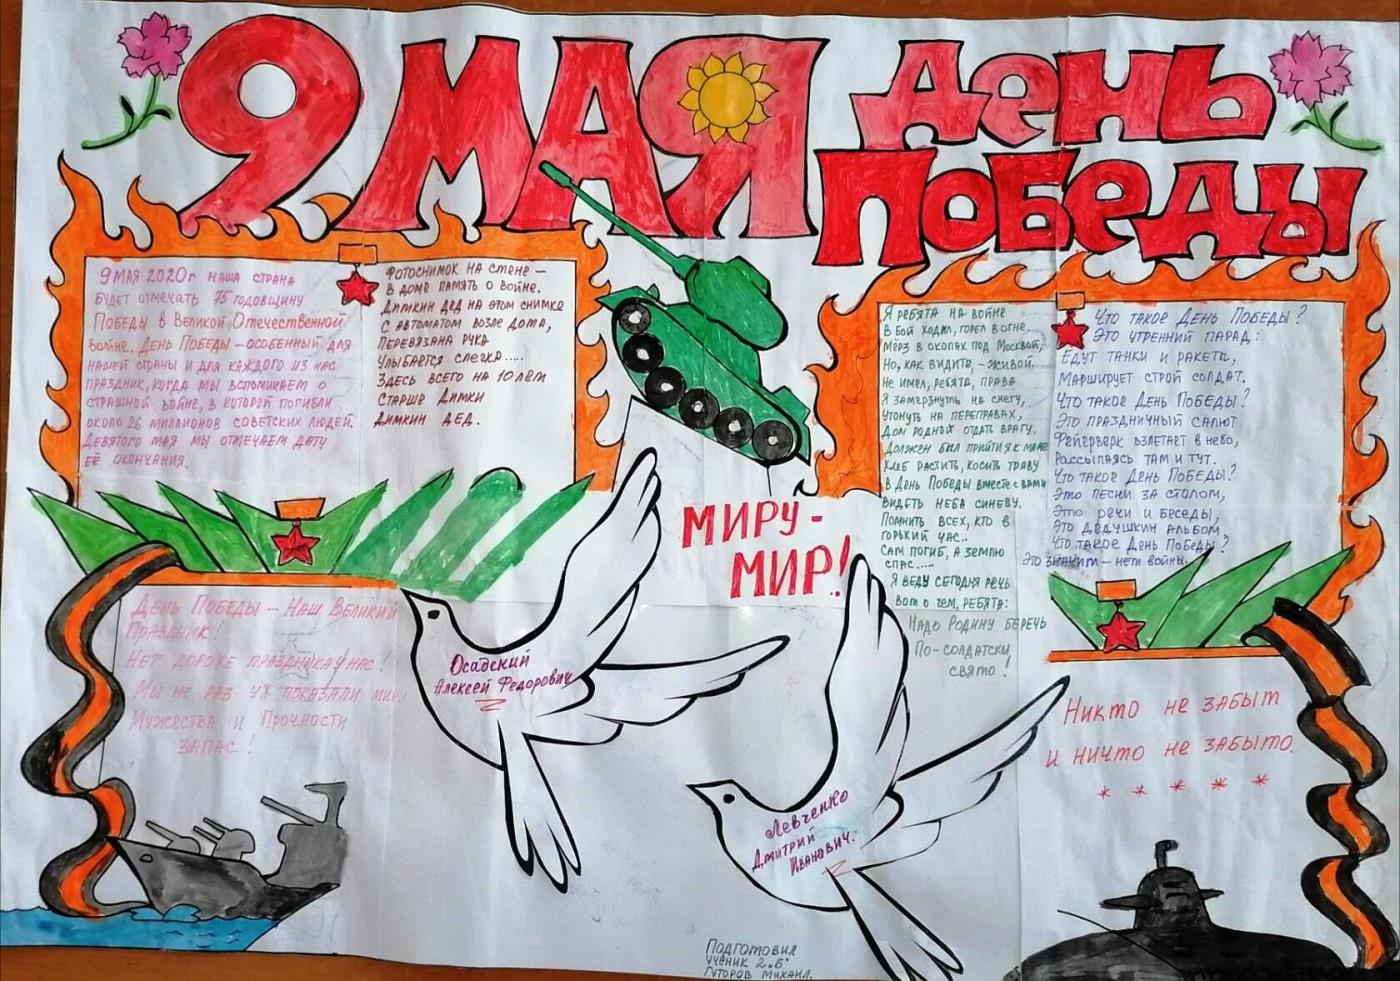 9 МАЯ
ДЕНЬ
ПОБЕДЫ
9 МАЯ 2020г НАША СТРАНА
БУДЕТ ОТМЕЧАТЬ 75 ГОДОВЩИНУ
ПОБЕДЫ В ВЕЛИКОЙ ОТЕЧЕСТВЕННОЙ
ВОЙНЕ. ДЕНЬ ПОБЕДЫ – ОСОБЕННЫЙ ДЛЯ
НАШЕЙ СТРАНЫ И ДЛЯ КАЖДОГО ИЗ НАС
ПРАЗДНИК, КОГДА МЫ ВСПОМИНАЕМ О
СТРАШНОЙ ВОЙНЕ, В КОТОРОЙ ПОГИБЛИ
ОКОЛО 26 МИЛЛИОНОВ СОВЕТСКИХ ЛЮДЕЙ.
ДЕВЯТОГО МАЯ МЫ ОТМЕЧАЕМ ДАТУ
ЕЁ ОКОНЧАНИЯ.
ФОТОСНИМОК НА СТЕНЕ –
В ДОМЕ ПАМЯТЬ О ВОЙНЕ.
ДИМКИН ДЕД НА ЭТОМ СНИМКЕ
С АВТОМАТОМ ВОЗЛЕ ДОТА,
ПЕРЕВЯЗАНА РУКА
УЛЫБАЕТСЯ СЛЕГКА.....
ЗДЕСЬ ВСЕГО НА 10 ЛЕТ
СТАРШЕ ДИМКИ
ДИМКИН ДЕД.
Я РЕБЯТА НА ВОЙНЕ
В БОЙ ХОДИЛ, ГОРЕЛ В ОГНЕ.
МЁРЗ В ОКОПАХ ПОД МОСКВОЙ,
НО, КАК ВИДИТЕ, – ЖИВОЙ.
НЕ ИМЕЛ, РЕБЯТА, ПРАВА
Я ЗАМЕРЗНУТЬ НА СНЕГУ,
УТОНУТЬ НА ПЕРЕПРАВАХ,
ДОМ РОДНОЙ ОТДАТЬ ВРАГУ.
ДОЛЖЕН БЫЛ ПРИЙТИ Я К МАМЕ
ХЛЕБ РАСТИТЬ, КОСИТЬ ТРАВУ
В ДЕНЬ ПОБЕДЫ ВМЕСТЕ С ВАМИ
ВИДЕТЬ НЕБА СИНЕВУ.
ПОМНИТЬ ВСЕХ, КТО В
ГОРЬКИЙ ЧАС..
САМ ПОГИБ, А ЗЕМЛЮ
СПАС.....
Я ВЕДУ СЕГОДНЯ РЕЧЬ
ВОТ О ЧЕМ, РЕБЯТА:
НАДО РОДИНУ БЕРЕЧЬ
ПО-СОЛДАТСКИ
СВЯТО!
ЧТО ТАКОЕ ДЕНЬ ПОБЕДЫ?
ЭТО УТРЕННИЙ ПАРАД:
ЕДУТ ТАНКИ И РАКЕТЫ,
МАРШИРУЕТ СТРОЙ СОЛДАТ.
ЧТО ТАКОЕ ДЕНЬ ПОБЕДЫ?
ЭТО ПРАЗДНИЧНЫЙ САЛЮТ
ФЕЙЕРВЕРК ВЗЛЕТАЕТ В НЕБО,
РАССЫПАЯСЬ ТАМ И ТУТ.
ЧТО ТАКОЕ ДЕНЬ ПОБЕДЫ?
ЭТО ПЕСНИ ЗА СТОЛОМ,
ЭТО РЕЧИ И БЕСЕДЫ,
ЭТО ДЕДУШКИН АЛЬБОМ,
ЧТО ТАКОЕ ДЕНЬ ПОБЕДЫ?
ЭТО ЗНАЧИТ – НЕТ ВОЙНЫ.
МИРУ -
МИР!
ДЕНЬ ПОБЕДЫ – НАШ ВЕЛИКИЙ
ПРАЗДНИК!
НЕТ ДОРОЖЕ ПРАЗДНИКА У НАС!
МЫ НЕ РАЗ УЖ ПОКАЗАЛИ МИРУ
МУЖЕСТВА И ПРОЧНОСТИ
ЗАПАС!
Осадский
Алексей Федорович
Левченко
Дмитрий
Иванович.
НИКТО НЕ ЗАБЫТ
И НИЧТО НЕ ЗАБЫТО.
* * * * *
ПОДГОТОВИЛ
УЧЕНИК 2 "Б"
ГУТОРОВ МИХАИЛ.